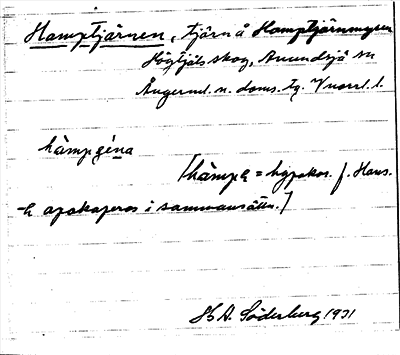 Hamptjärnen, tjärn å Hamptjärnmyren
Högtjäls skog, Anundsjö sn
Ångerml. n. doms. tg. V norrl. l.
hàmpʂéna
[hàmpɐ = hypokor. f. Hans.
-ɐ apokoperas i sammansättn.]
K A. Söderberg 1931